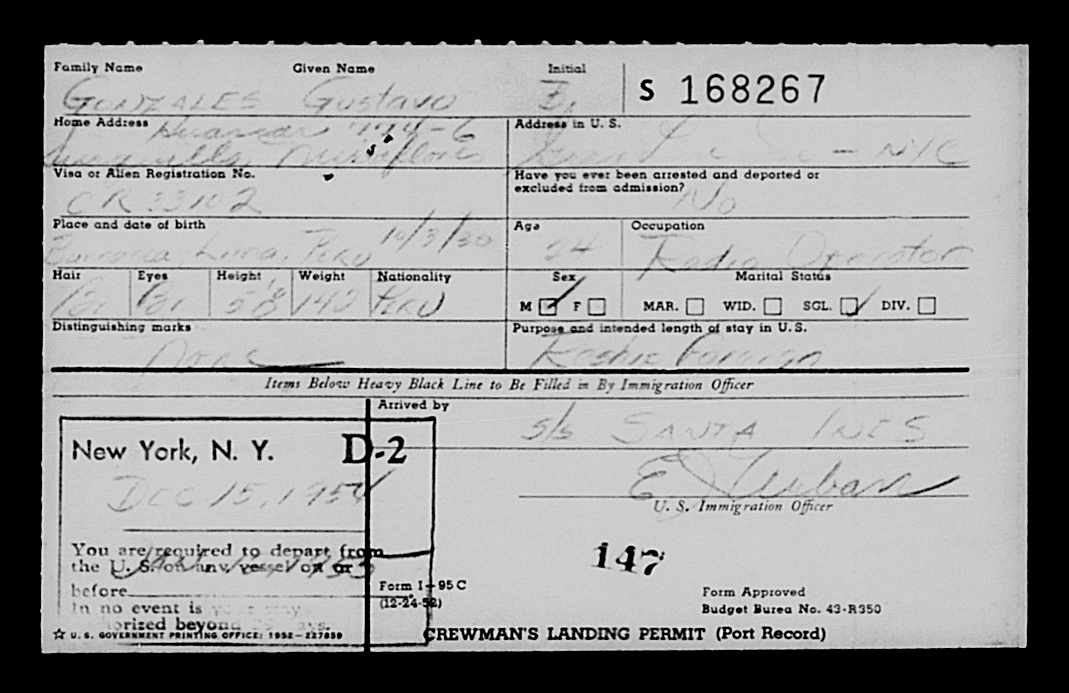 Family Name Given Name Initial
GONZALES Gustavo E. S 168267
Home Address Address in U. S.
Huascar 774-6
Miraflores - NYC
Visa or Alien Registration No. Have you ever been arrested and deported or excluded from admission?
CR No
Place and date of birth Age Occupation
Lima, Peru 10/3/30 24 Radio Operator
Hair Eyes Height Weight Nationality Sex Marital Status
Br Br 5'8 142 PERU M F MAR. WID. SGL. DIV.
Distinguishing marks Purpose and intended length of stay in U. S.
None Reship Foreign
Items Below Heavy Black Line to Be Filled in By Immigration Officer
Arrived by
S/S SANTA INES
New York, N. Y. D-2
DEC 15, 1954
U. S. Immigration Officer
You are required to depart from
the U. S. on any vessel on or
before
In no event is your stay
authorized beyond 29 days.
147
Form I-95 C
(12-24-52)
Form Approved
Budget Burea No. 43-R350
☆ U. S. GOVERNMENT PRINTING OFFICE: 1952-227859
CREWMAN'S LANDING PERMIT (Port Record)